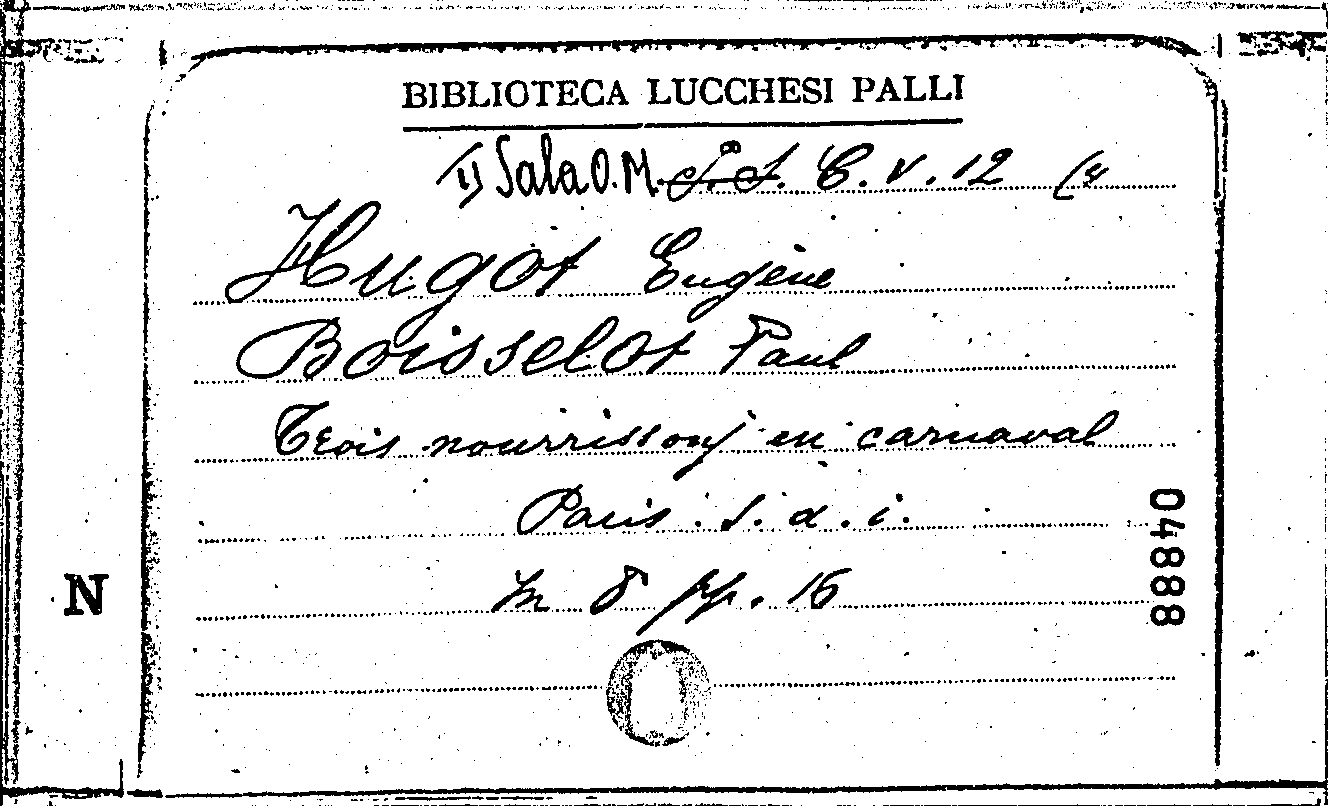 BIBLIOTECA LUCCHESI PALLI
Sala O.M. C. V. 12 (4
Hugot Eugène
Boisselot Paul
Trois nourrissons en carnaval
Paris. s. d. i.
In 8 pp. 16
N
04888